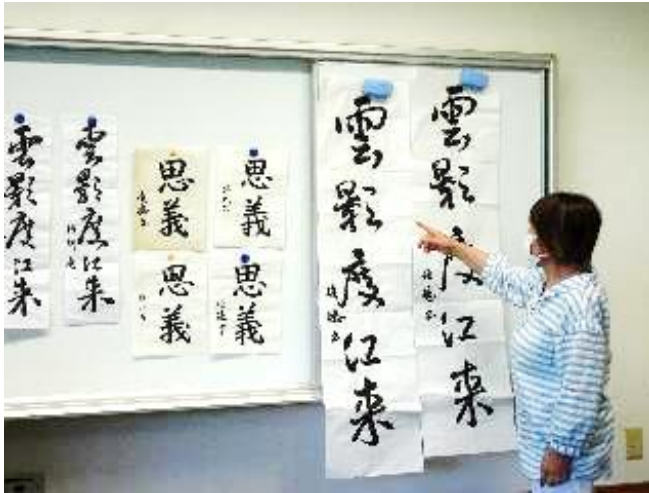 雲影度江来
雲影度江来
思義
思義
思義
思義
雲影度江来
雲影度江来